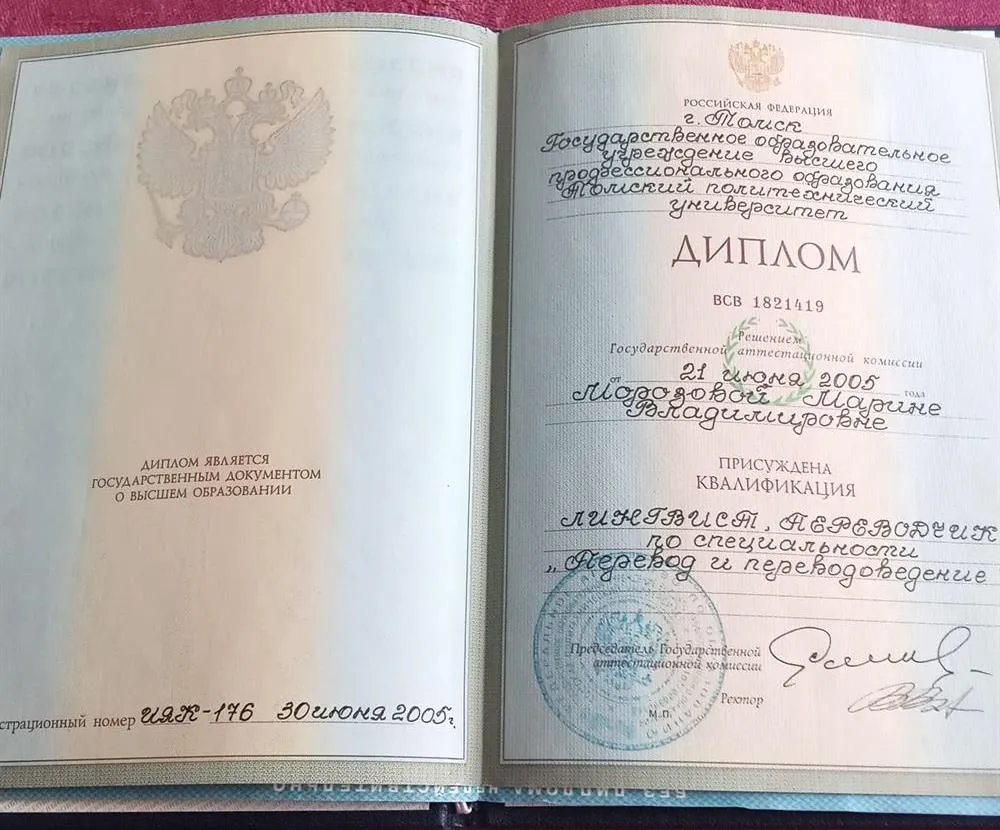 ДИПЛОМ ЯВЛЯЕТСЯ
ГОСУДАРСТВЕННЫМ ДОКУМЕНТОМ
О ВЫСШЕМ ОБРАЗОВАНИИ
страционный номер ИЯК-176 30 июня 2005г.
РОССИЙСКАЯ ФЕДЕРАЦИЯ
г. Томск
Государственное образовательное
учреждение высшего
профессионального образования
Томский политехнический
университет
ДИПЛОМ
ВСВ 1821419
Решением
Государственной аттестационной комиссии
от 21 июня 2005 года
Морозовой Марине
Владимировне
ПРИСУЖДЕНА
КВАЛИФИКАЦИЯ
ЛИНГВИСТ, ПЕРЕВОДЧИК
по специальности
„Перевод и переводоведение
Председатель Государственной
аттестационной комиссии
Ректор
М.П.
БЕЗ ДИПЛОМА НЕДЕЙСТВИТЕЛЬНО